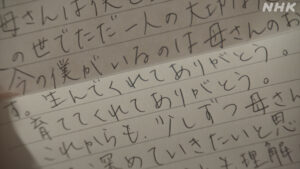 NHK
母さんは僕と
の世でただ一人の大切な
今の僕がいるのは母さんのお
す。生んでくれてありがとう。
育ててくれてありがとう。
これからも、少しずつ母さん
深めていきたいと思
理解